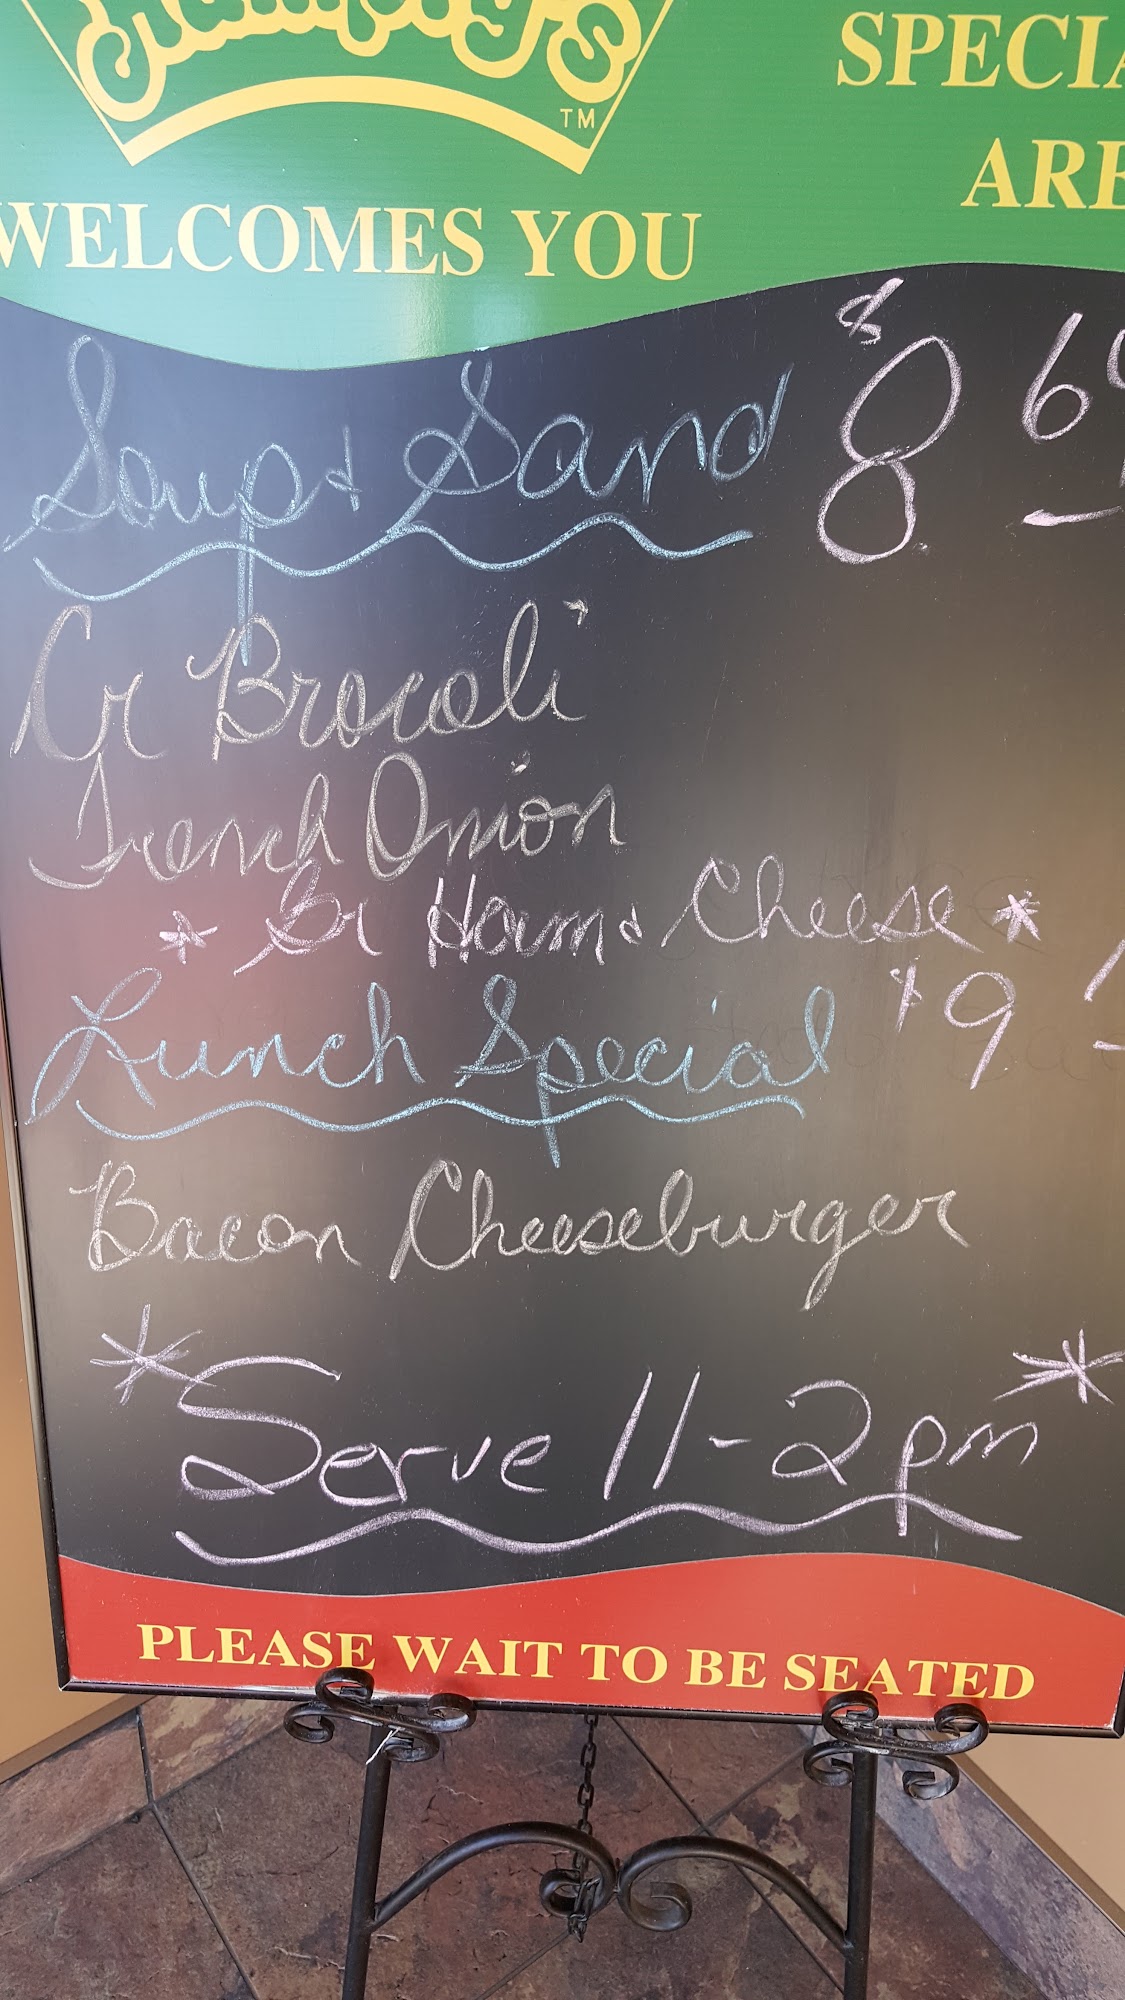 TM
SPECIA
ARE
WELCOMES YOU
Soup & Sand $8 69
Cr Brocoli
French Onion
* Gr Ham & Cheese *
Lunch Special $9
Bacon Cheeseburger
* Serve 11-2pm *
PLEASE WAIT TO BE SEATED